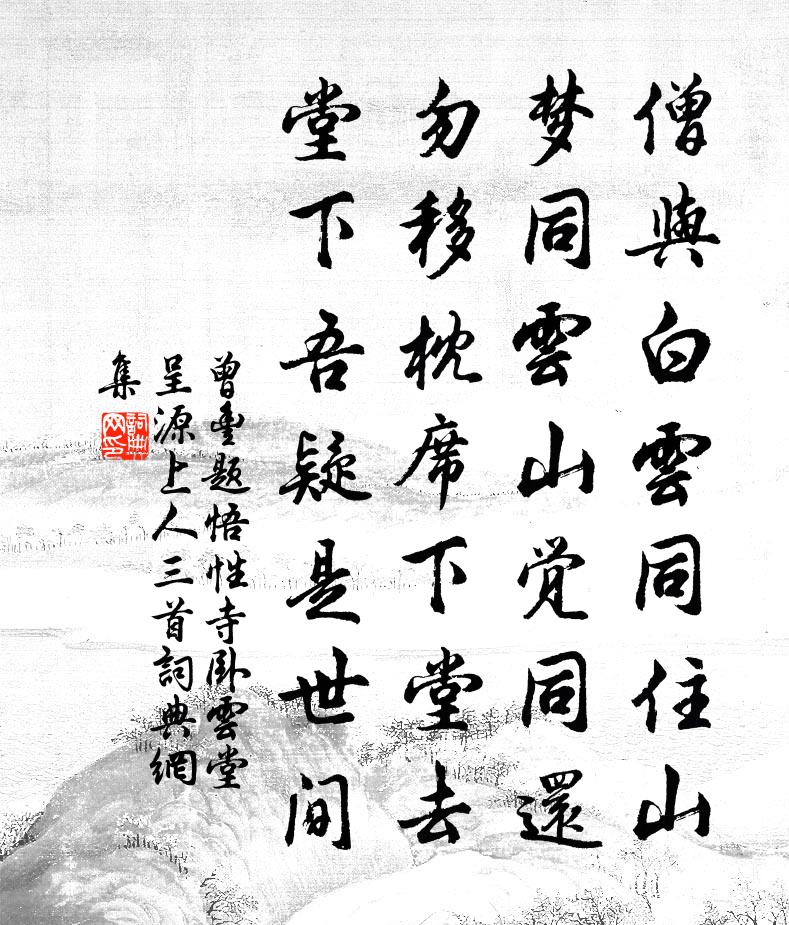 僧與白雲同住山
梦同雲山觉同還
勿移枕席下堂去
堂下吾疑是世间
曾豊题悟性寺卧雲堂
呈源上人三首詞典網
集
詞典网印